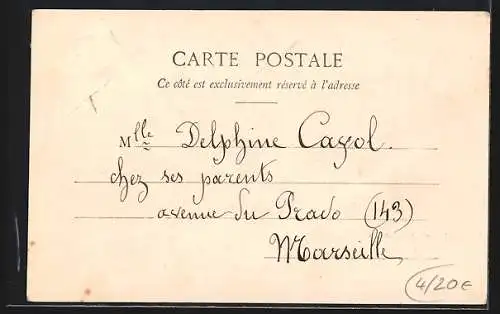 CARTE POSTALE
Ce côté est exclusivement réservé à l'adresse
Mlle Delphine Cayol.
chez ses parents
avenue du Prado (143)
Marseille
4/20€